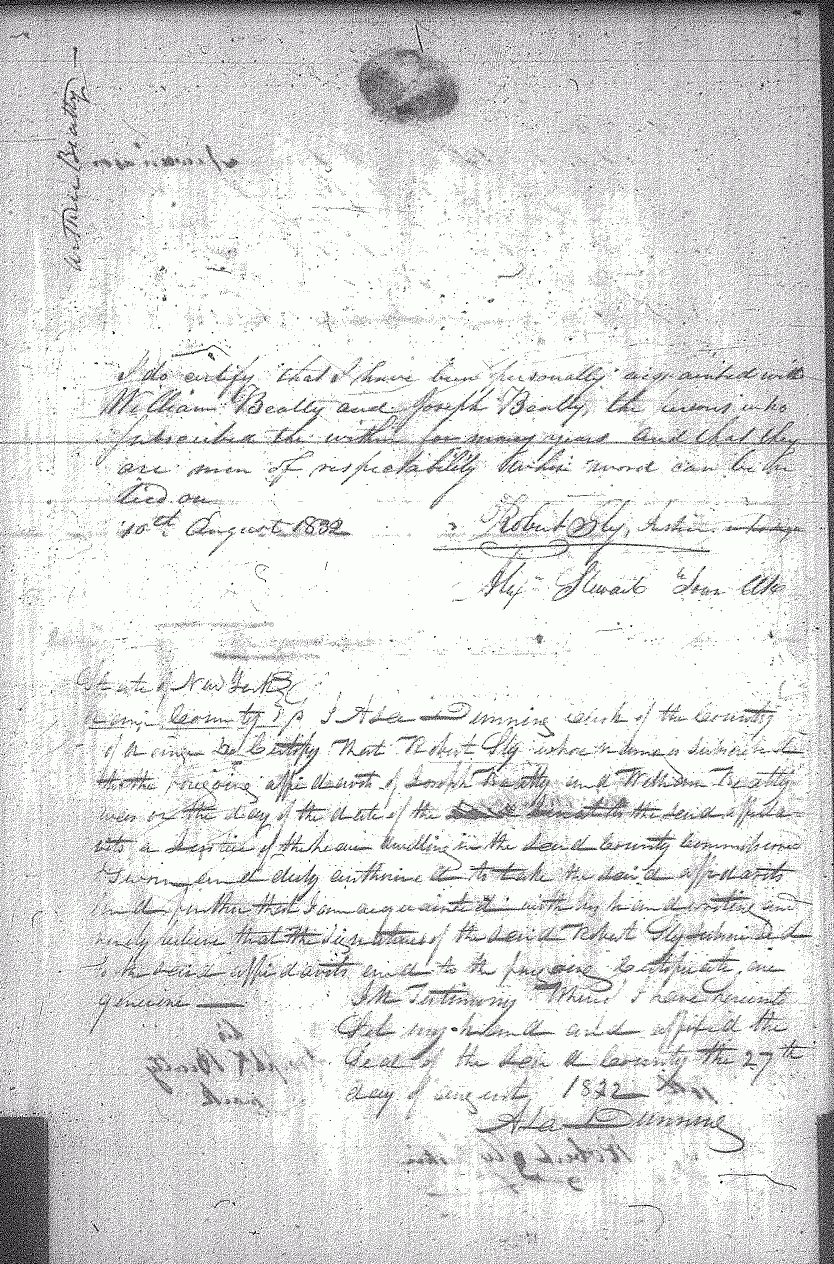 Arthur Beatty
I do certify that I have been personally acquainted with
William Beatty and Joseph Beatty, the persons who
subscribed the within for many years and that they
are men of respectability
lied on
10th August 1832 Robert Sly, Justice
Alexr Stewart Town Clk
State of New York
Orange County Ss I Asa Dunning Clerk of the County
of Orange Do Certify that Robert Sly whose name is subscribed
to the foregoing affidavits of Joseph Beatty and William Beatty
was on the day of the date of the the said affida-
vits a Justice of the Peace dwelling in the said County Commissioned
& Sworn and duly authorized to take the said affidavits
and further that I am acquainted with his hand writing and
verily believe that the signatures of the said Robert Sly subscribed
to the said affidavits and to the foregoing Certificate, are
genuine
In Testimony Whereof I have hereunto
Set my hand and affixed the
Seal of the said County the 27th
day of August 1832
Asa Dunning